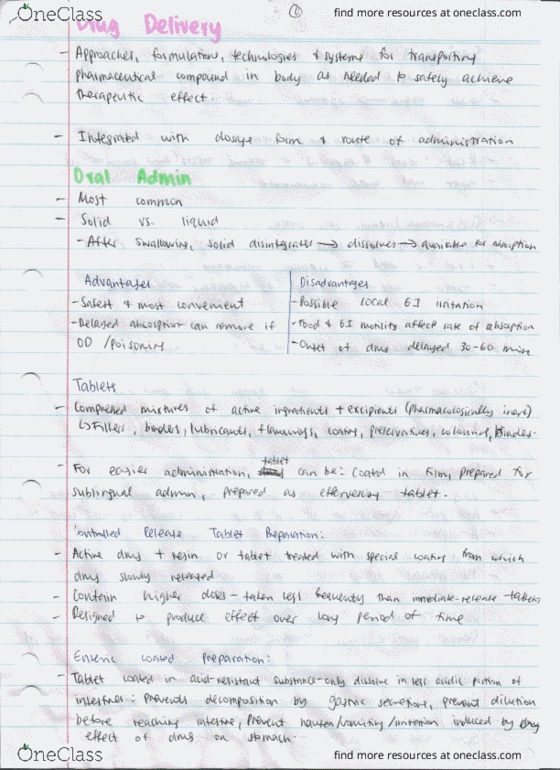 OneClass
①
find more resources at oneclass.com
Drug Delivery
- Approaches, formulation, technologies + systems for transporting
pharmaceutical compound in body as needed to safely achieve
therapeutic effect.
- Integrated with dosage form + route of administration
Oral Admin
- Most common
- Solid vs. liquid
- After swallowing, solid disintegrates → dissolves → available for absorption
Advantages
- Safest + most convenient
- Delayed absorption can remove if
OD / Poisoning
Disadvantages
- Possible local GI irritation
- Food & GI motility affect rate of absorption
- Onset of drug delayed 30-60 mins
Tablets
- Compressed mixtures of active ingredients + excipients (pharmacologically inert)
↳ Fillers, binders, lubricants, flavourings, coating, preservatives, colouring, Binder.
- For easier administration, tablet can be: coated in film, prepared for
sublingual admin, prepared as effervescing tablet.
Controlled Release Tablet Preparation:
- Active drug + resin or tablet treated with special coating from which
drug slowly released
- Contain higher doses - taken less frequently than immediate-release tablets
- Designed to produce effect over long period of time
Enteric coated Preparation:
- Tablet coated in acid-resistant substance-only dissolve in less acidic portion of
intestines: Prevents decomposition by gastric secretions, prevent dilution
before reaching intestine, Prevent nausea/vomiting/irritation induced by
effect of drug on stomach.
OneClass
find more resources at oneclass.com